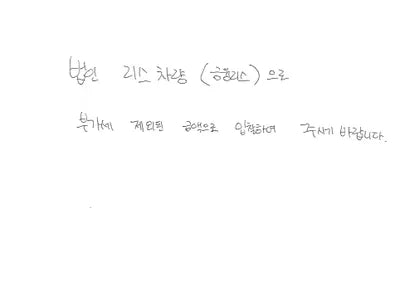 법인 리스차량 (금융리스)으로
부가세 제외된 금액으로 입찰하여 주시기 바랍니다.